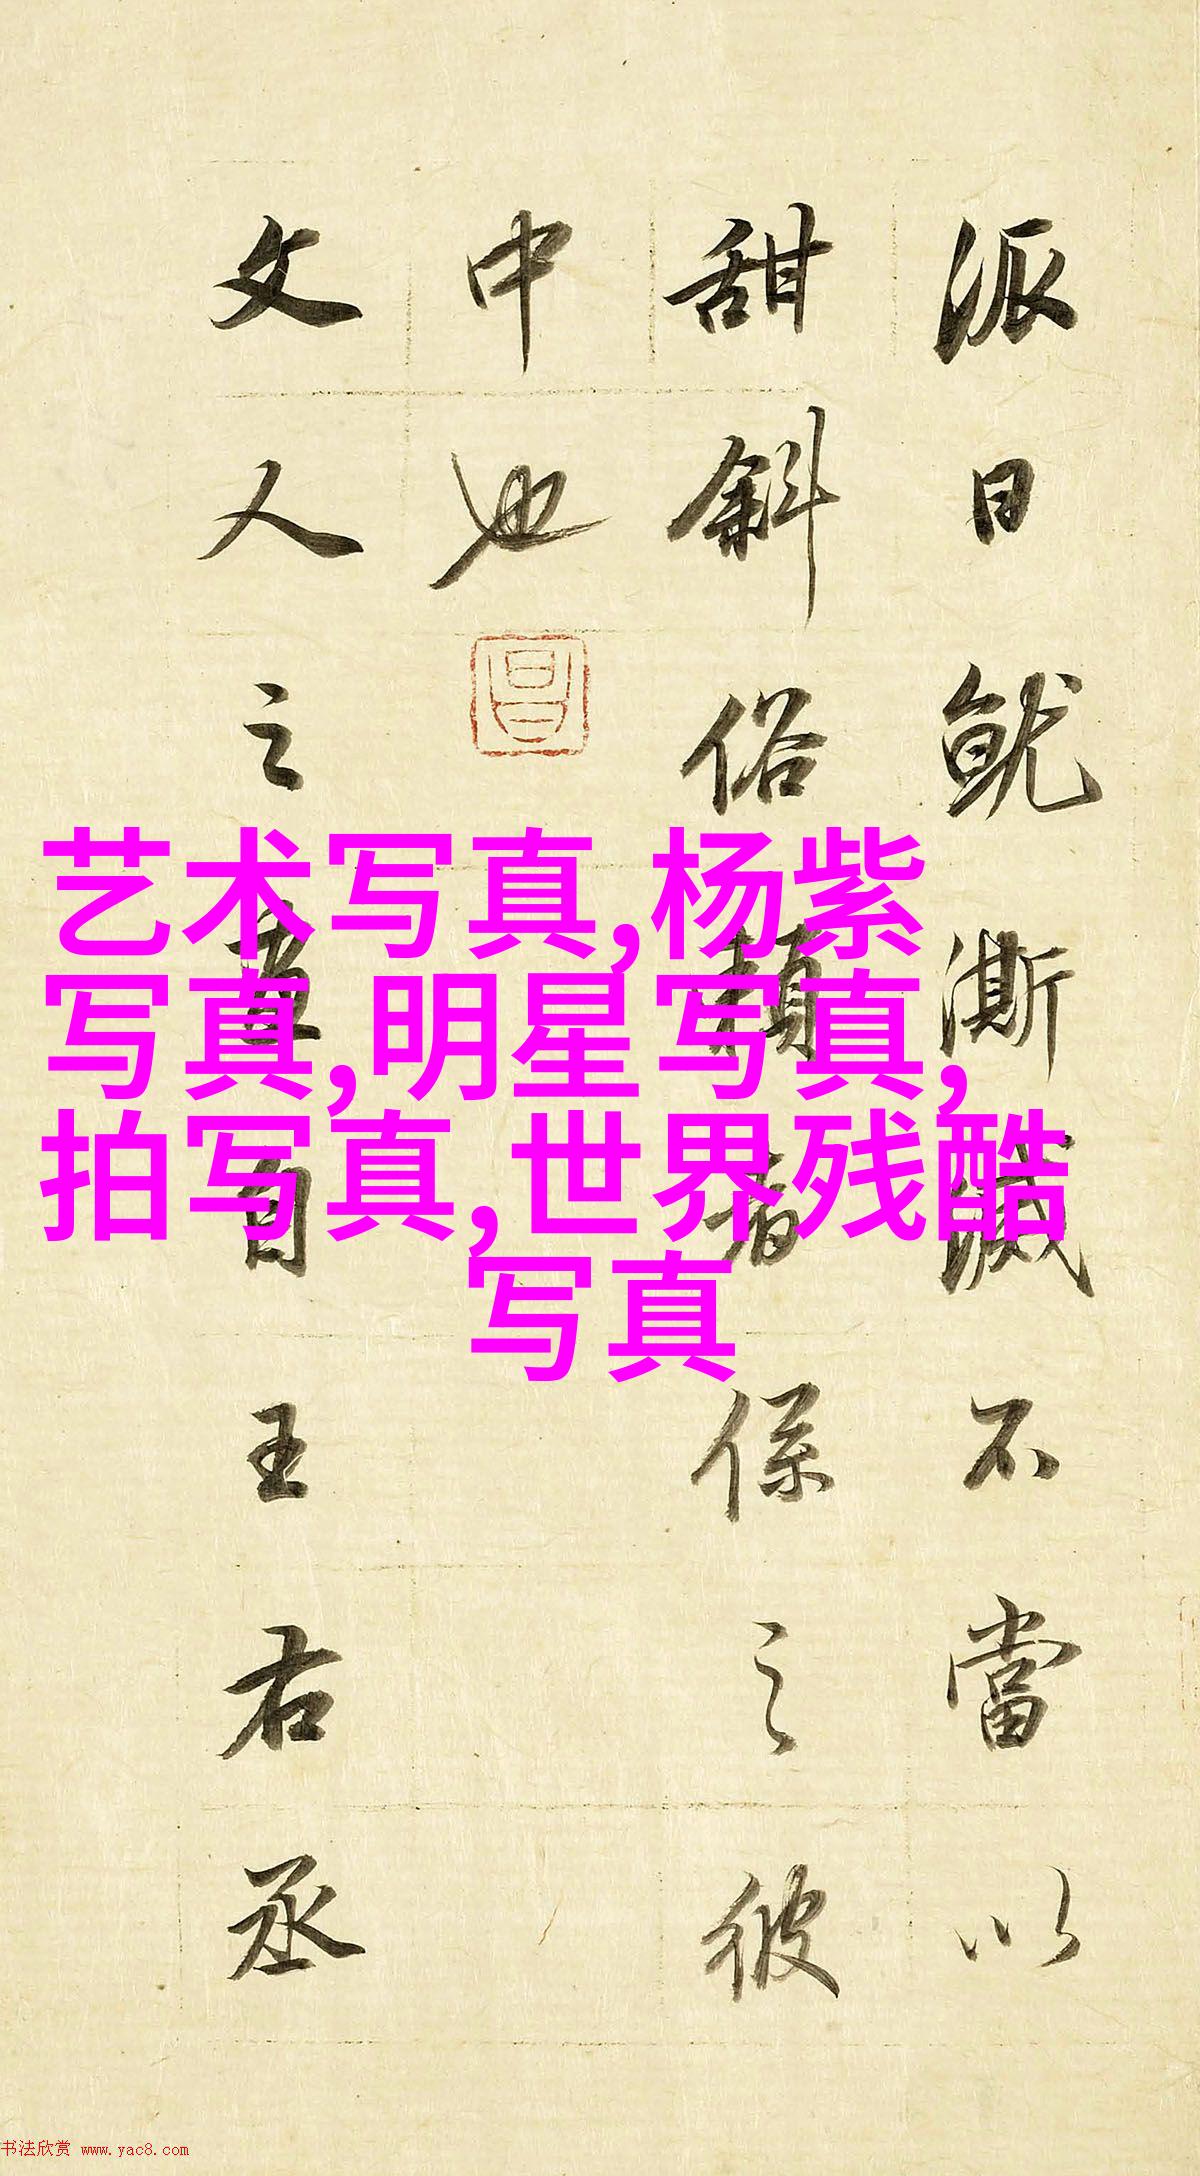 派日就澌滅不當以
甜斜俗賴者係之彼
中也
文人之畫自王右丞
昌
艺术写真,杨紫
写真,明星写真,
拍写真,世界残酷
写真
书法欣赏 www.yac8.com